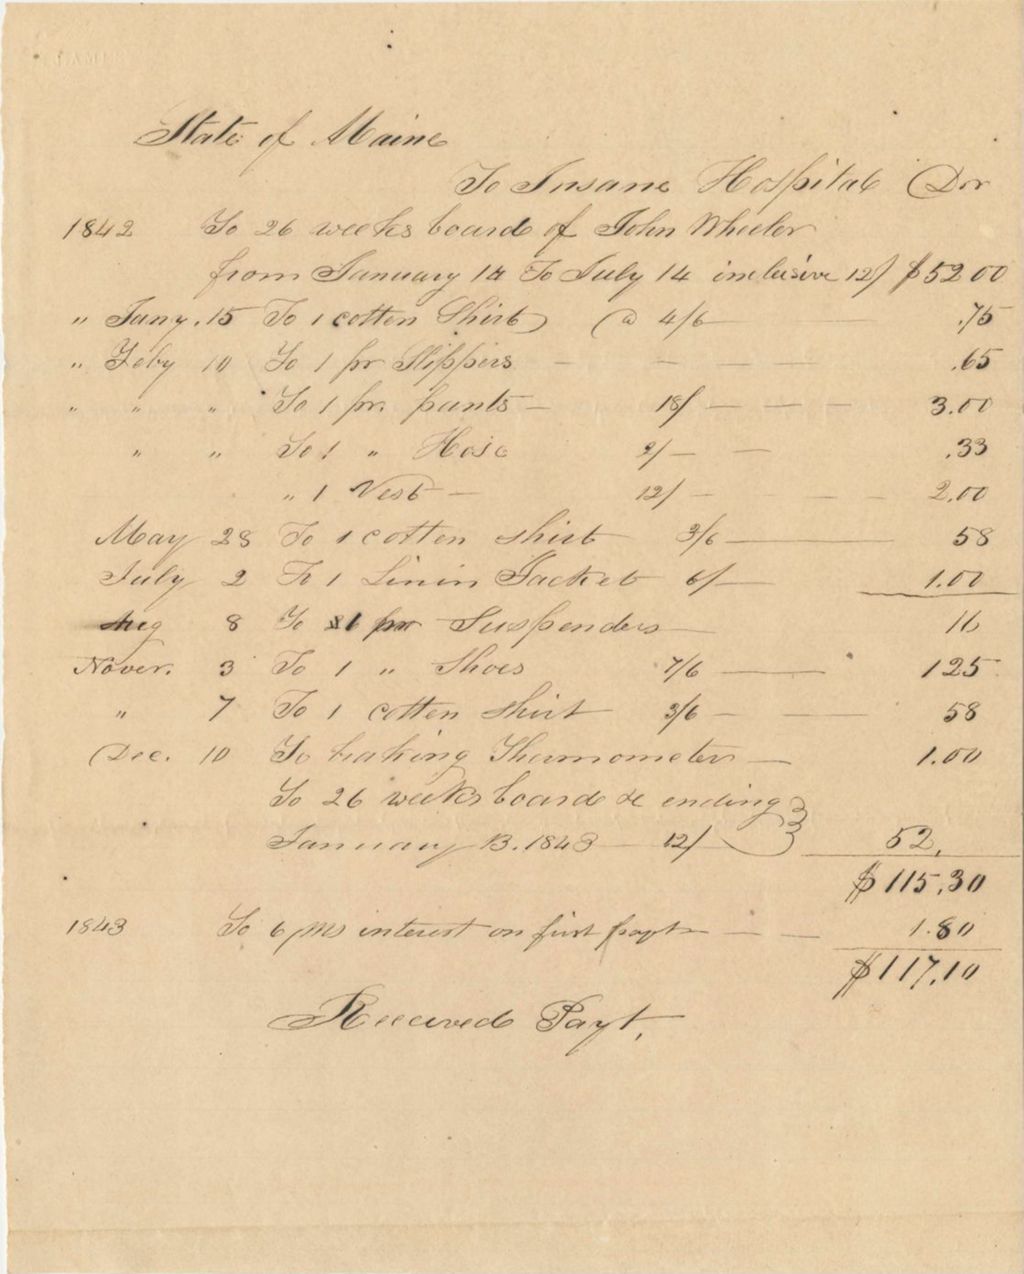 State of Maine
To Insane Hospital Dr
1842 To 26 weeks board of John Wheeler
from January 14 To July 14 inclusive 12/ $52 00
" Jany. 15 To 1 cotten Shirt @ 4/6 .75
" Feby 10 To 1 pr Slippers .65
" " " To 1 pr. pants 18/ 3.00
" " To 1 " Hose 2/ .33
" 1 Vest 12/ 2.00
May 28 To 1 cotten shirt 3/6 58
July 2 To 1 Linin Jacket 6/ 1.00
Aug 8 To 1 pr Suspenders 16
Nover. 3 To 1 " Shoes 7/6 125
" 7 To 1 cotten shirt 3/6 58
Dec. 10 To braking Thurmometer 1.00
To 26 weeks board &c ending
January 13. 1843 12/ 52,
$115,30
1843 To 6 Ms interest on first payt 1.80
$117,10
Received Payt,